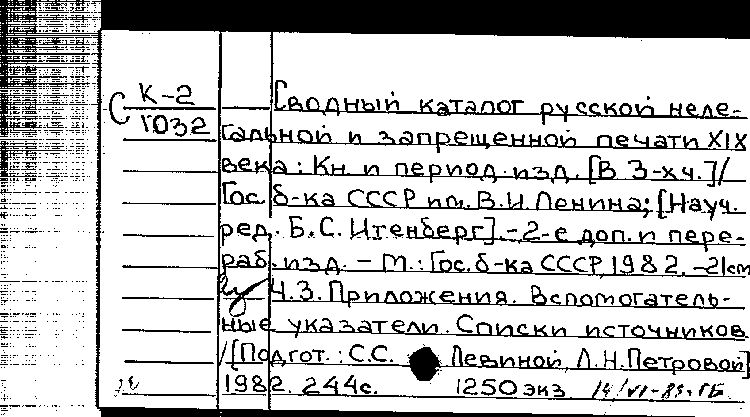 К-2
С 1032
Сводный каталог русской неле-
гальной и запрещенной печати XIX
века: Кн. и период. изд. [В 3-х ч.] /
Гос. б-ка СССР им. В.И. Ленина; [Науч.
ред. Б.С. Итенберг]. - 2-е доп. и пере-
раб. изд. - М.: Гос. б-ка СССР, 1982. - 21см
Ч.3. Приложения. Вспомогатель-
ные указатели. Списки источников
/[Подгот.: С.С. Левиной, Л.Н. Петровой]
1982. 244с. 1250 экз